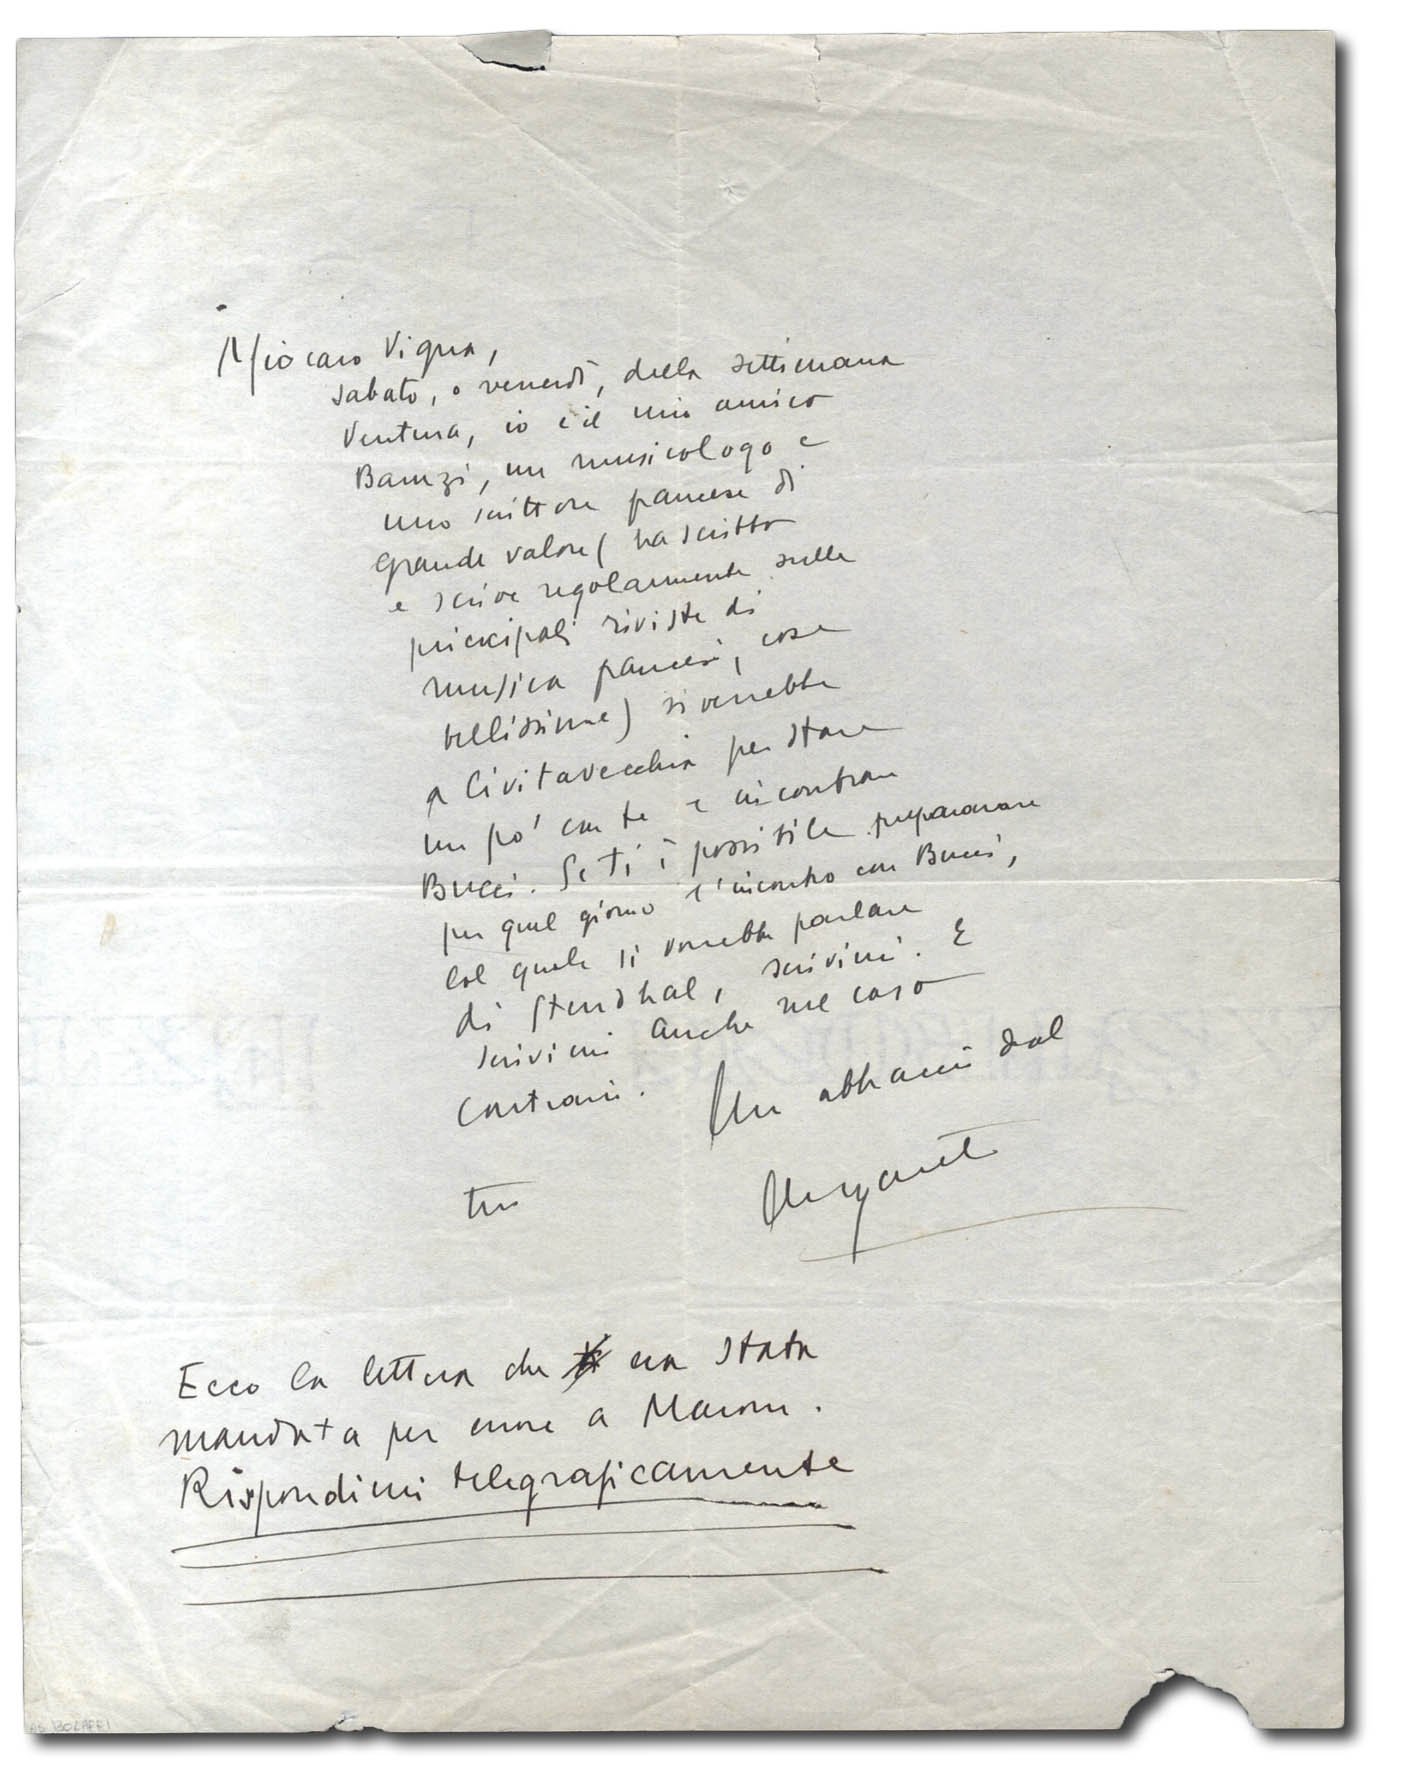 Mio caro Vigna,
sabato, o venerdì, della settimana
ventura, io e il mio amico
Baruzi, un musicologo e
uno scrittore francese di
grande valore (ha scritto
e scrive regolarmente sulle
principali riviste di
musica francesi, cose
bellissime) si verrebbe
a Civitavecchia per stare
un po' con te e incontrare
Bucci. Se ti è possibile
per quel giorno l'incontro con Bucci,
col quale si vorrebbe parlare
di Stendhal, scrivimi. E
scrivimi anche nel caso
contrario.
Un abbraccio dal
tuo Ungaretti
Ecco la lettera che era stata
mandata per errore a Maroni.
Rispondimi telegraficamente
AS BOLAFFI